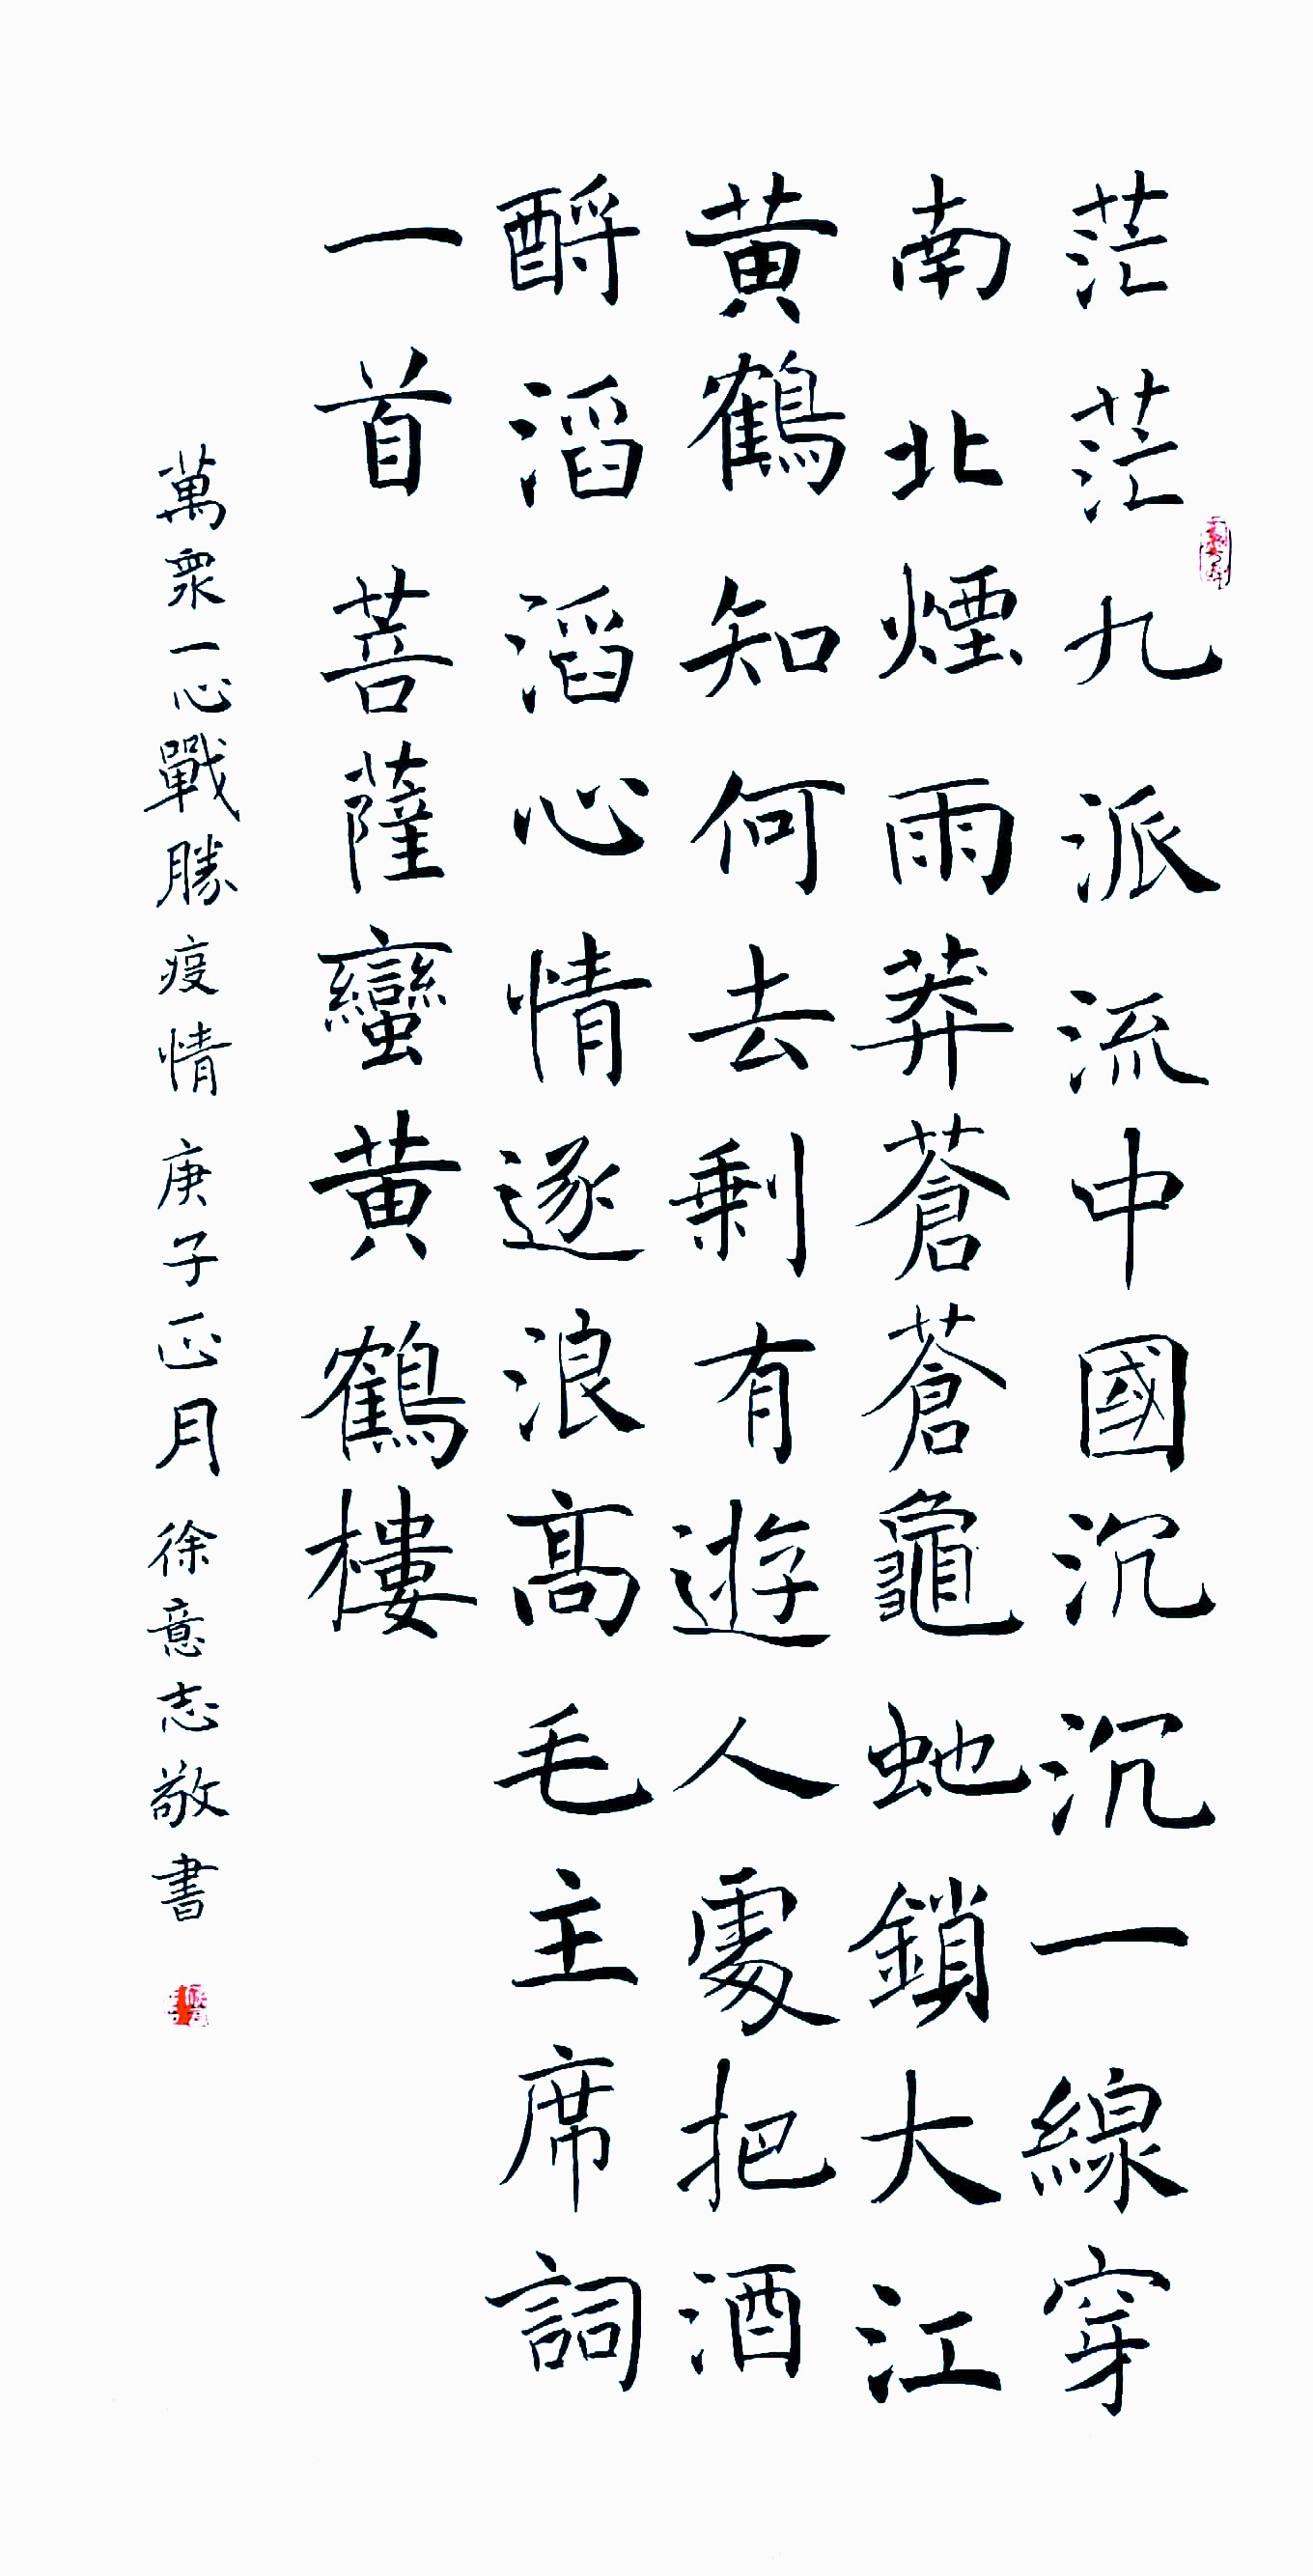 茫茫九派流中國沉沉一線穿
南北煙雨莽蒼蒼龜虵鎖大江
黄鶴知何去剩有遊人處把酒
酹滔滔心情逐浪高毛主席詞
一首菩薩蠻黄鶴樓
萬衆一心戰勝疫情庚子正月徐意志敬書